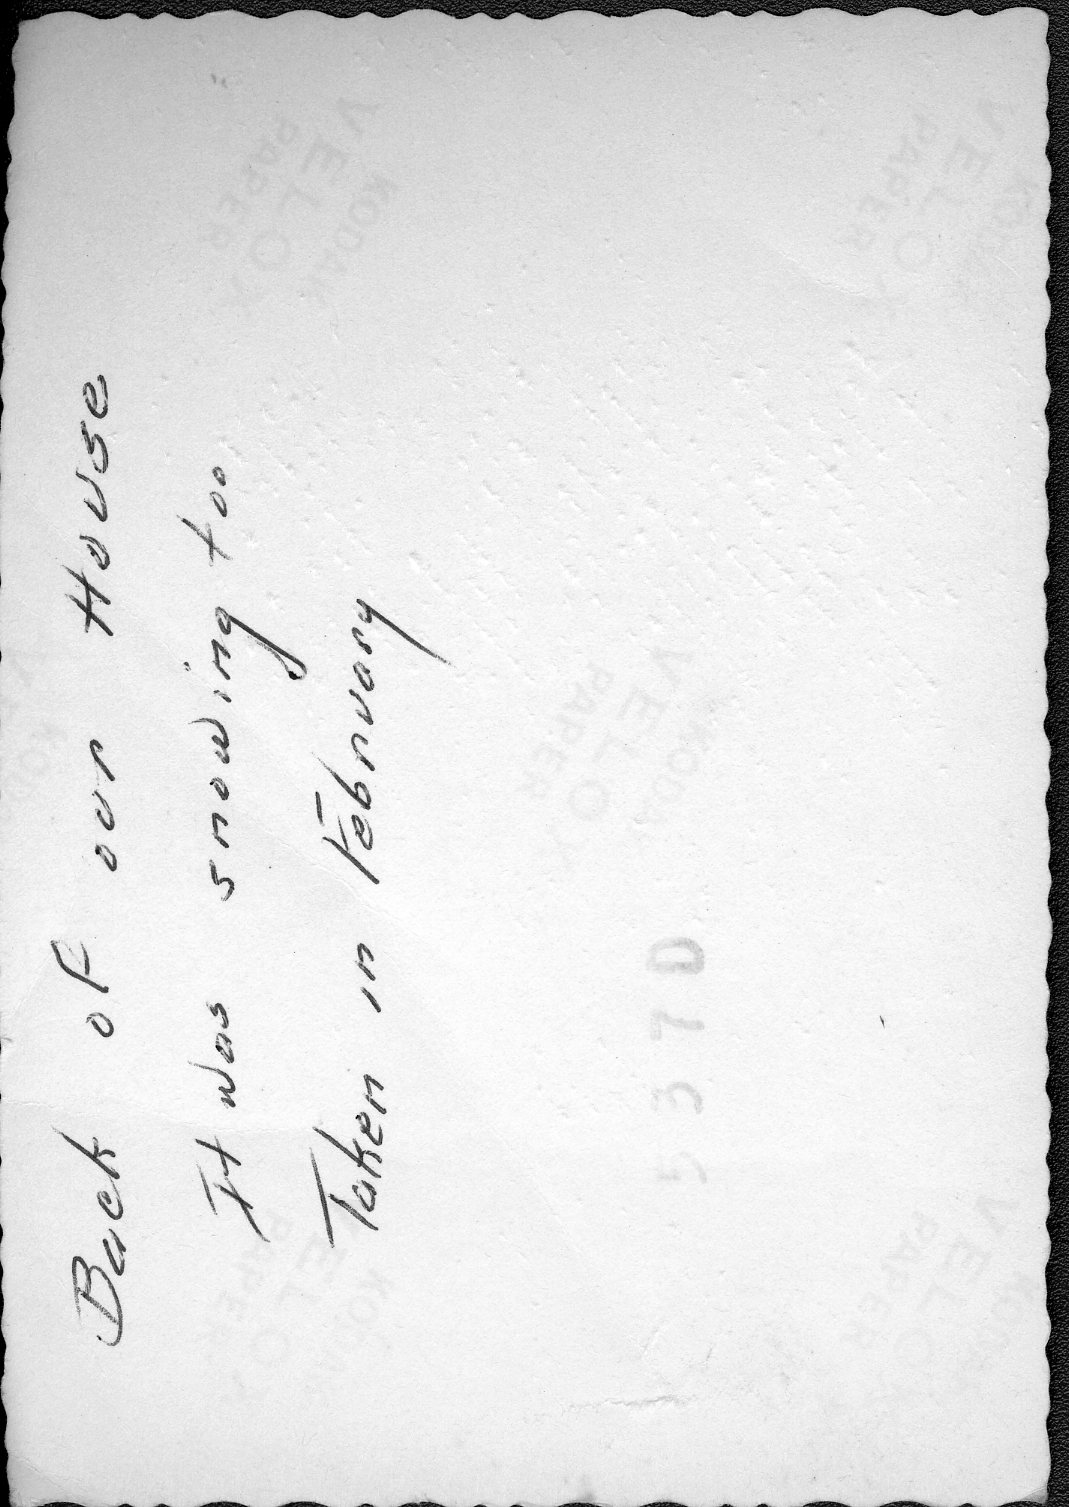 Back of our House
It was snowing too
Taken in February
537D
VELOX
KODAK
PAPER
VELOX
KODAK
PAPER
VELOX
KODAK
PAPER
VELOX
KODAK
PAPER
VELOX
KODAK
PAPER